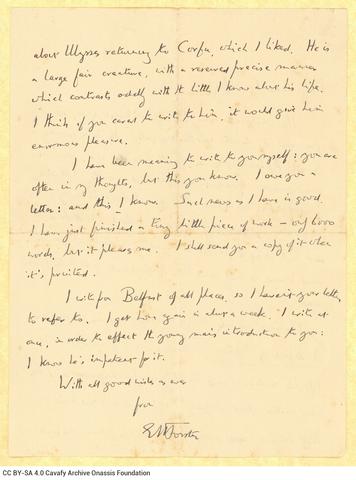 about Ulysses returning to Corfu, which I liked. He is
a large fair creature, with a reserved precise manner
which contrasts oddly with the little I know about his life.
I think if you cared to write to him, it would give him
enormous pleasure.
I have been meaning to write to you myself: you are
often in my thoughts, but this you know. I owe you a
letter: and this I know. Such news as I have is good.
I have just finished a tiny little piece of work — only 6000
words, but it pleases me. I shall send you a copy of it when
it's printed.
I write from Belfast of all places, so I haven't your letter
to refer to. I get home again in about a week. I write at
once, in order to effect the young man's introduction to you:
I know he's impatient for it.
With all good wishes as ever
from
EMForster
CC BY-SA 4.0 Cavafy Archive Onassis Foundation